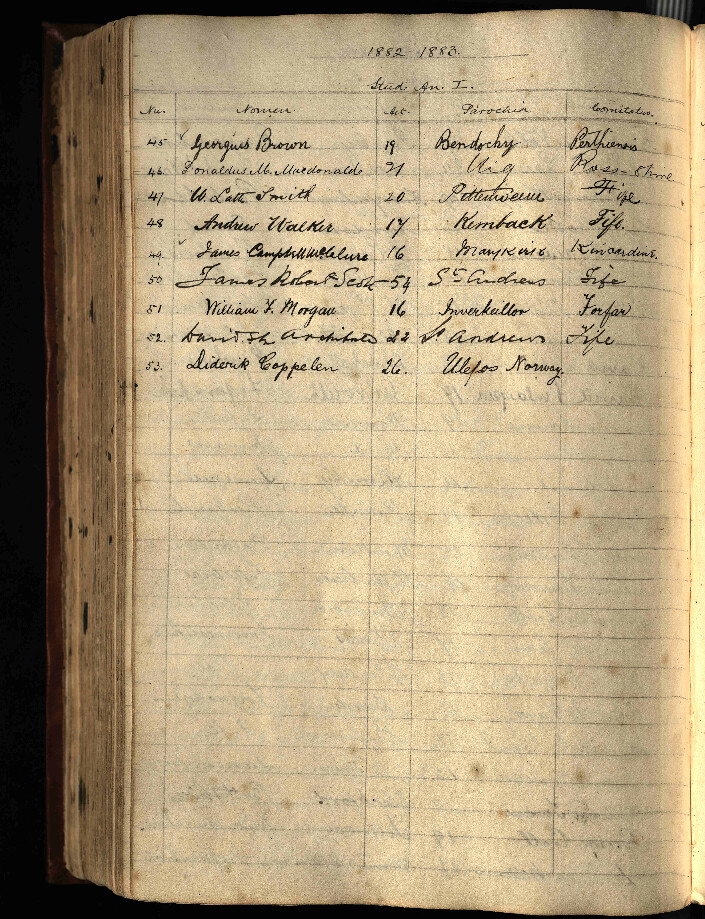 1882 1883.
Stud. An. I.
No. Nomen. Aet. Parochia Comitatus.
45 Georgius Brown 19 Bendochy Perthensis
46. Donaldus M. Macdonald 21 Uig Ross-shire
47 W. Latto Smith 20 Pittenweem Fife
48 Andrew Walker 17 Kemback Fife.
49. James Campbell McClure 16 Marykirk Kincardine.
50 James Robert Scott 54 St Andrews Fife
51 William F. Morgan 16 Inverkeillor Forfar
52. David 22 St Andrews Fife
53. Diderik Coppelen 26. Ulefos Norway.